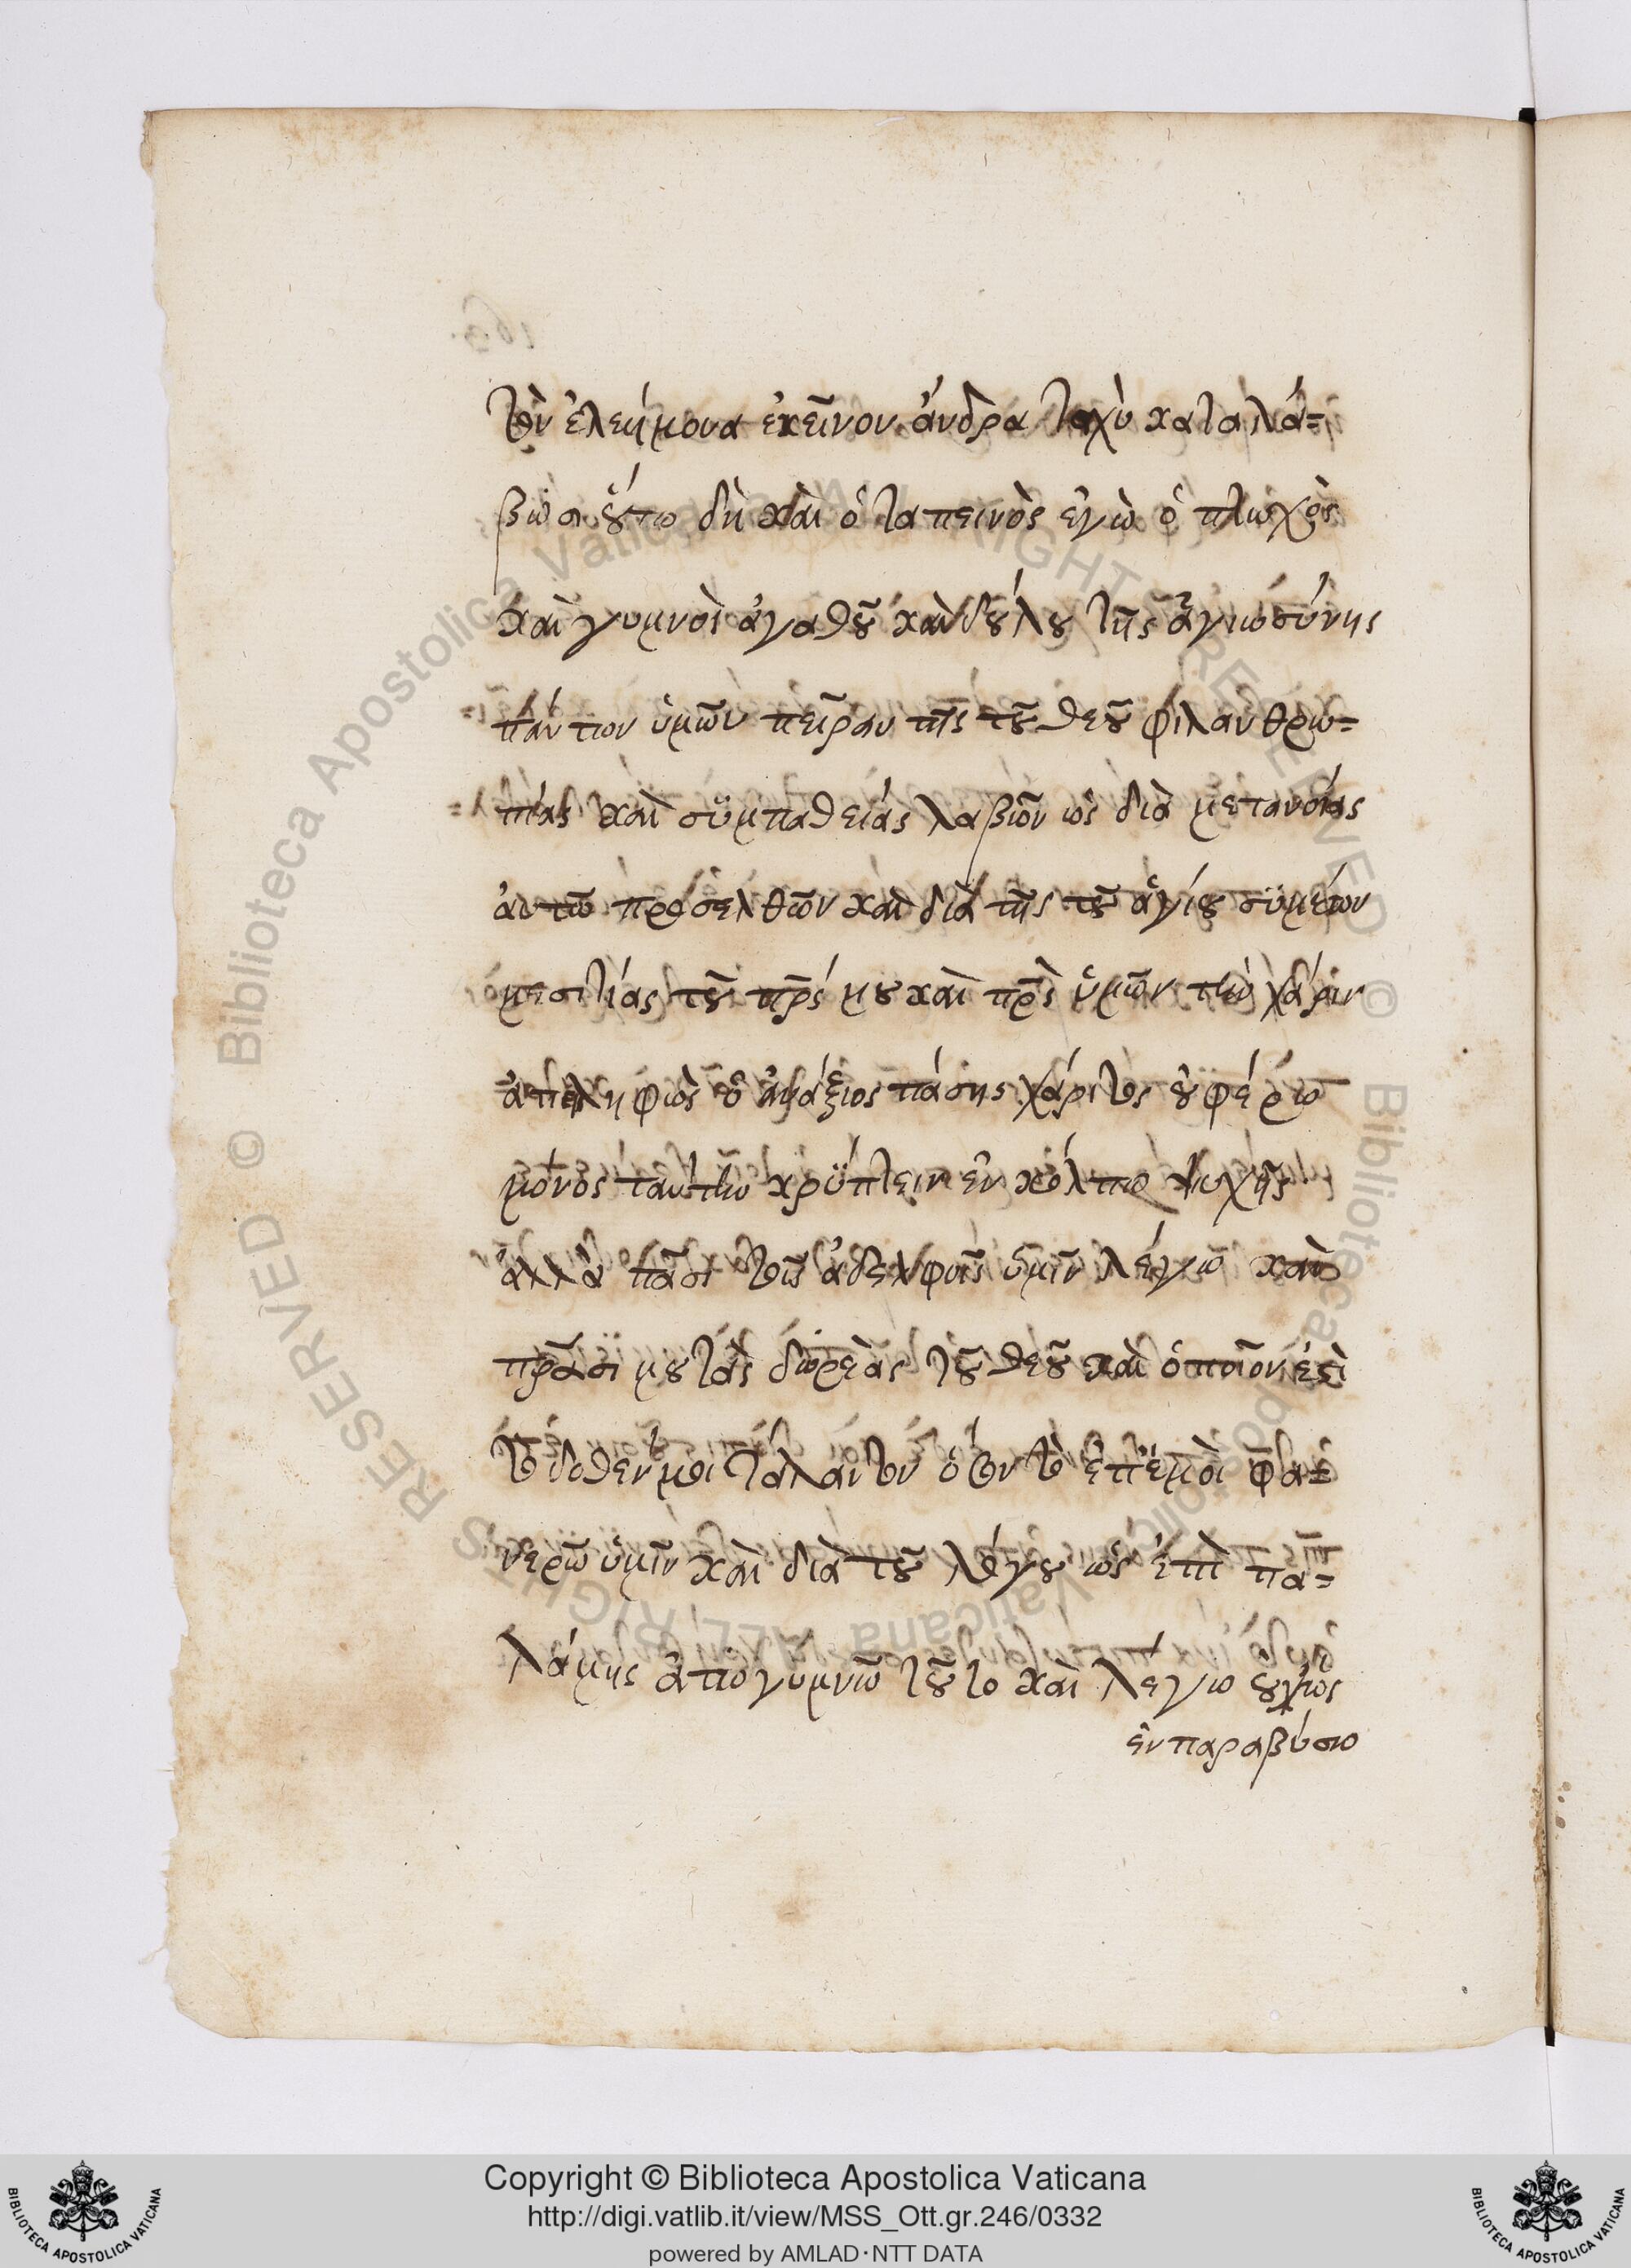 τὸν ἐλεήμονα ἐκεῖνον ἄνδρα ταχὺ καταλά=
βωσι οὕτω δὴ καὶ ὁ ταπεινὸς ἐγὼ ὁ πτωχὸς
καὶ γυμνὸς ἀγαθοῦ καὶ δοῦλου τῆς ἁγιωσύνης
πάντων ὑμῶν πεῖραν τῆς τοῦ θεοῦ φιλανθρω=
πίας καὶ συμπαθείας λαβὼν ὡς διὰ μετανοίας
αὐτῶ προσελθὼν καὶ διὰ τῆς τοῦ ἁγίου συμεὼν
μεσιτίας τοῦ πρς μου καὶ πρς ὑμῶν τὴν χάριν
ἀπειληφὼς ὁ ἀνάξιος πάσης χάριτος οὐ φέρω
μόνος ταύτην κρύπτειν ἐν κόλπω ψυχῆς
ἀλλὰ πᾶσι τοῖς ἀδελφοῖς ὑμῖν λέγω καὶ
πρᾶσι μου τὰς δωρεὰς τοῦ θεοῦ καὶ ὁποῖον ἐστὶ
τὸ δοθέν μοι τάλαντον ὅσον τὸ ἐπ ἐμοὶ φα=
νερῶ ὑμῖν καὶ διὰ τοῦ λόγου ὡς ἐπὶ πα=
λάμης ἀπογυμνῶ τοῦτο καὶ λέγω οὐχ ὡς
ἐν παραβύσω
Copyright © Biblioteca Apostolica Vaticana
http://digi.vatlib.it/view/MSS_Ott.gr.246/0332
powered by AMLAD·NTT DATA